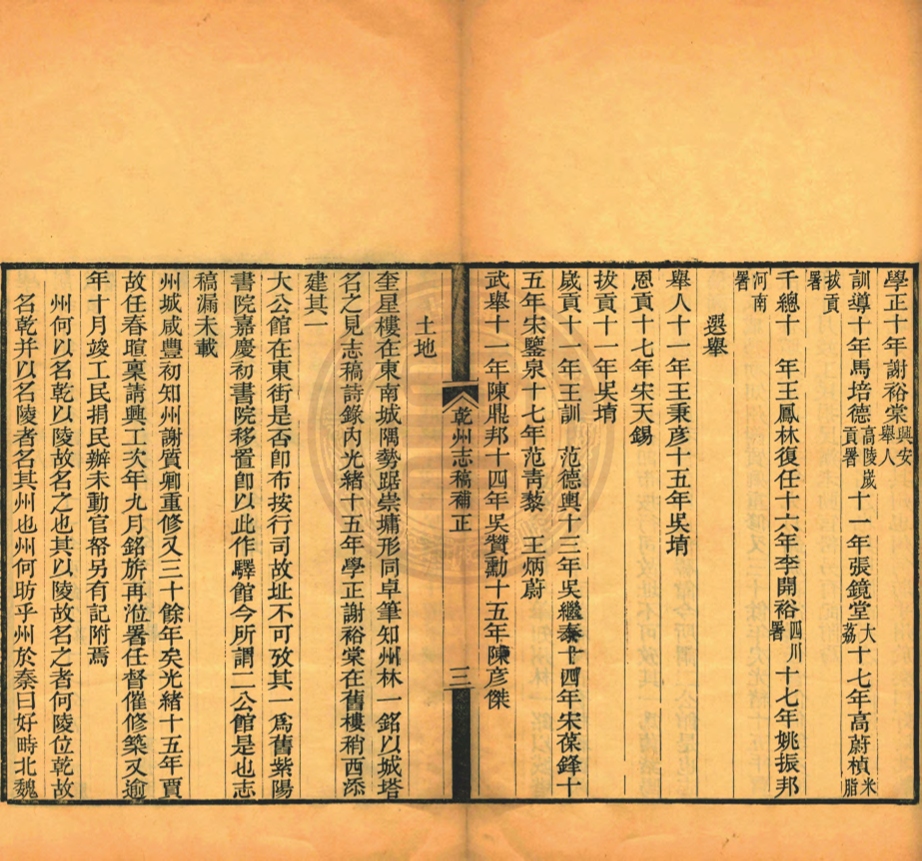 學正十年謝裕棠興安舉人
訓導十年馬培德高陵歲貢署十一年張鏡堂大荔十七年高蔚楨米脂
拔貢署
千總十　年王鳳林復任十六年李開裕四川署十七年姚振邦
河南署
選舉
舉人十一年王秉彥十五年吳堉
恩貢十七年宋天錫
拔貢十一年吳堉
歲貢十一年王訓　范德輿十三年吳繼泰十四年宋葆鋒十
五年宋鑒泉十七年范青藜　王炳蔚
武舉十一年陳鼎邦十四年吳贊勳十五年陳彥傑
乾州志稿補正
三
土地
奎星樓在東南城隅勢踞崇墉形同卓筆知州林一銘以城塔
名之見志稿詩錄內光緒十五年學正謝裕棠在舊樓稍西添
建其一
大公館在東街是否卽布按行司故址不可攷其一爲舊紫陽
書院嘉慶初書院移置卽以此作驛館今所謂二公館是也志
稿漏未載
州城咸豐初知州謝質卿重修又三十餘年矣光緒十五年賈
故任春暄稟請興工次年九月銘旂再涖署任督催修築又逾
年十月竣工民捐民辦未動官帑另有記附焉
州何以名乾以陵故名之也其以陵故名之者何陵位乾故
名乾并以名陵者名其州也州何昉乎州於秦曰好畤北魏